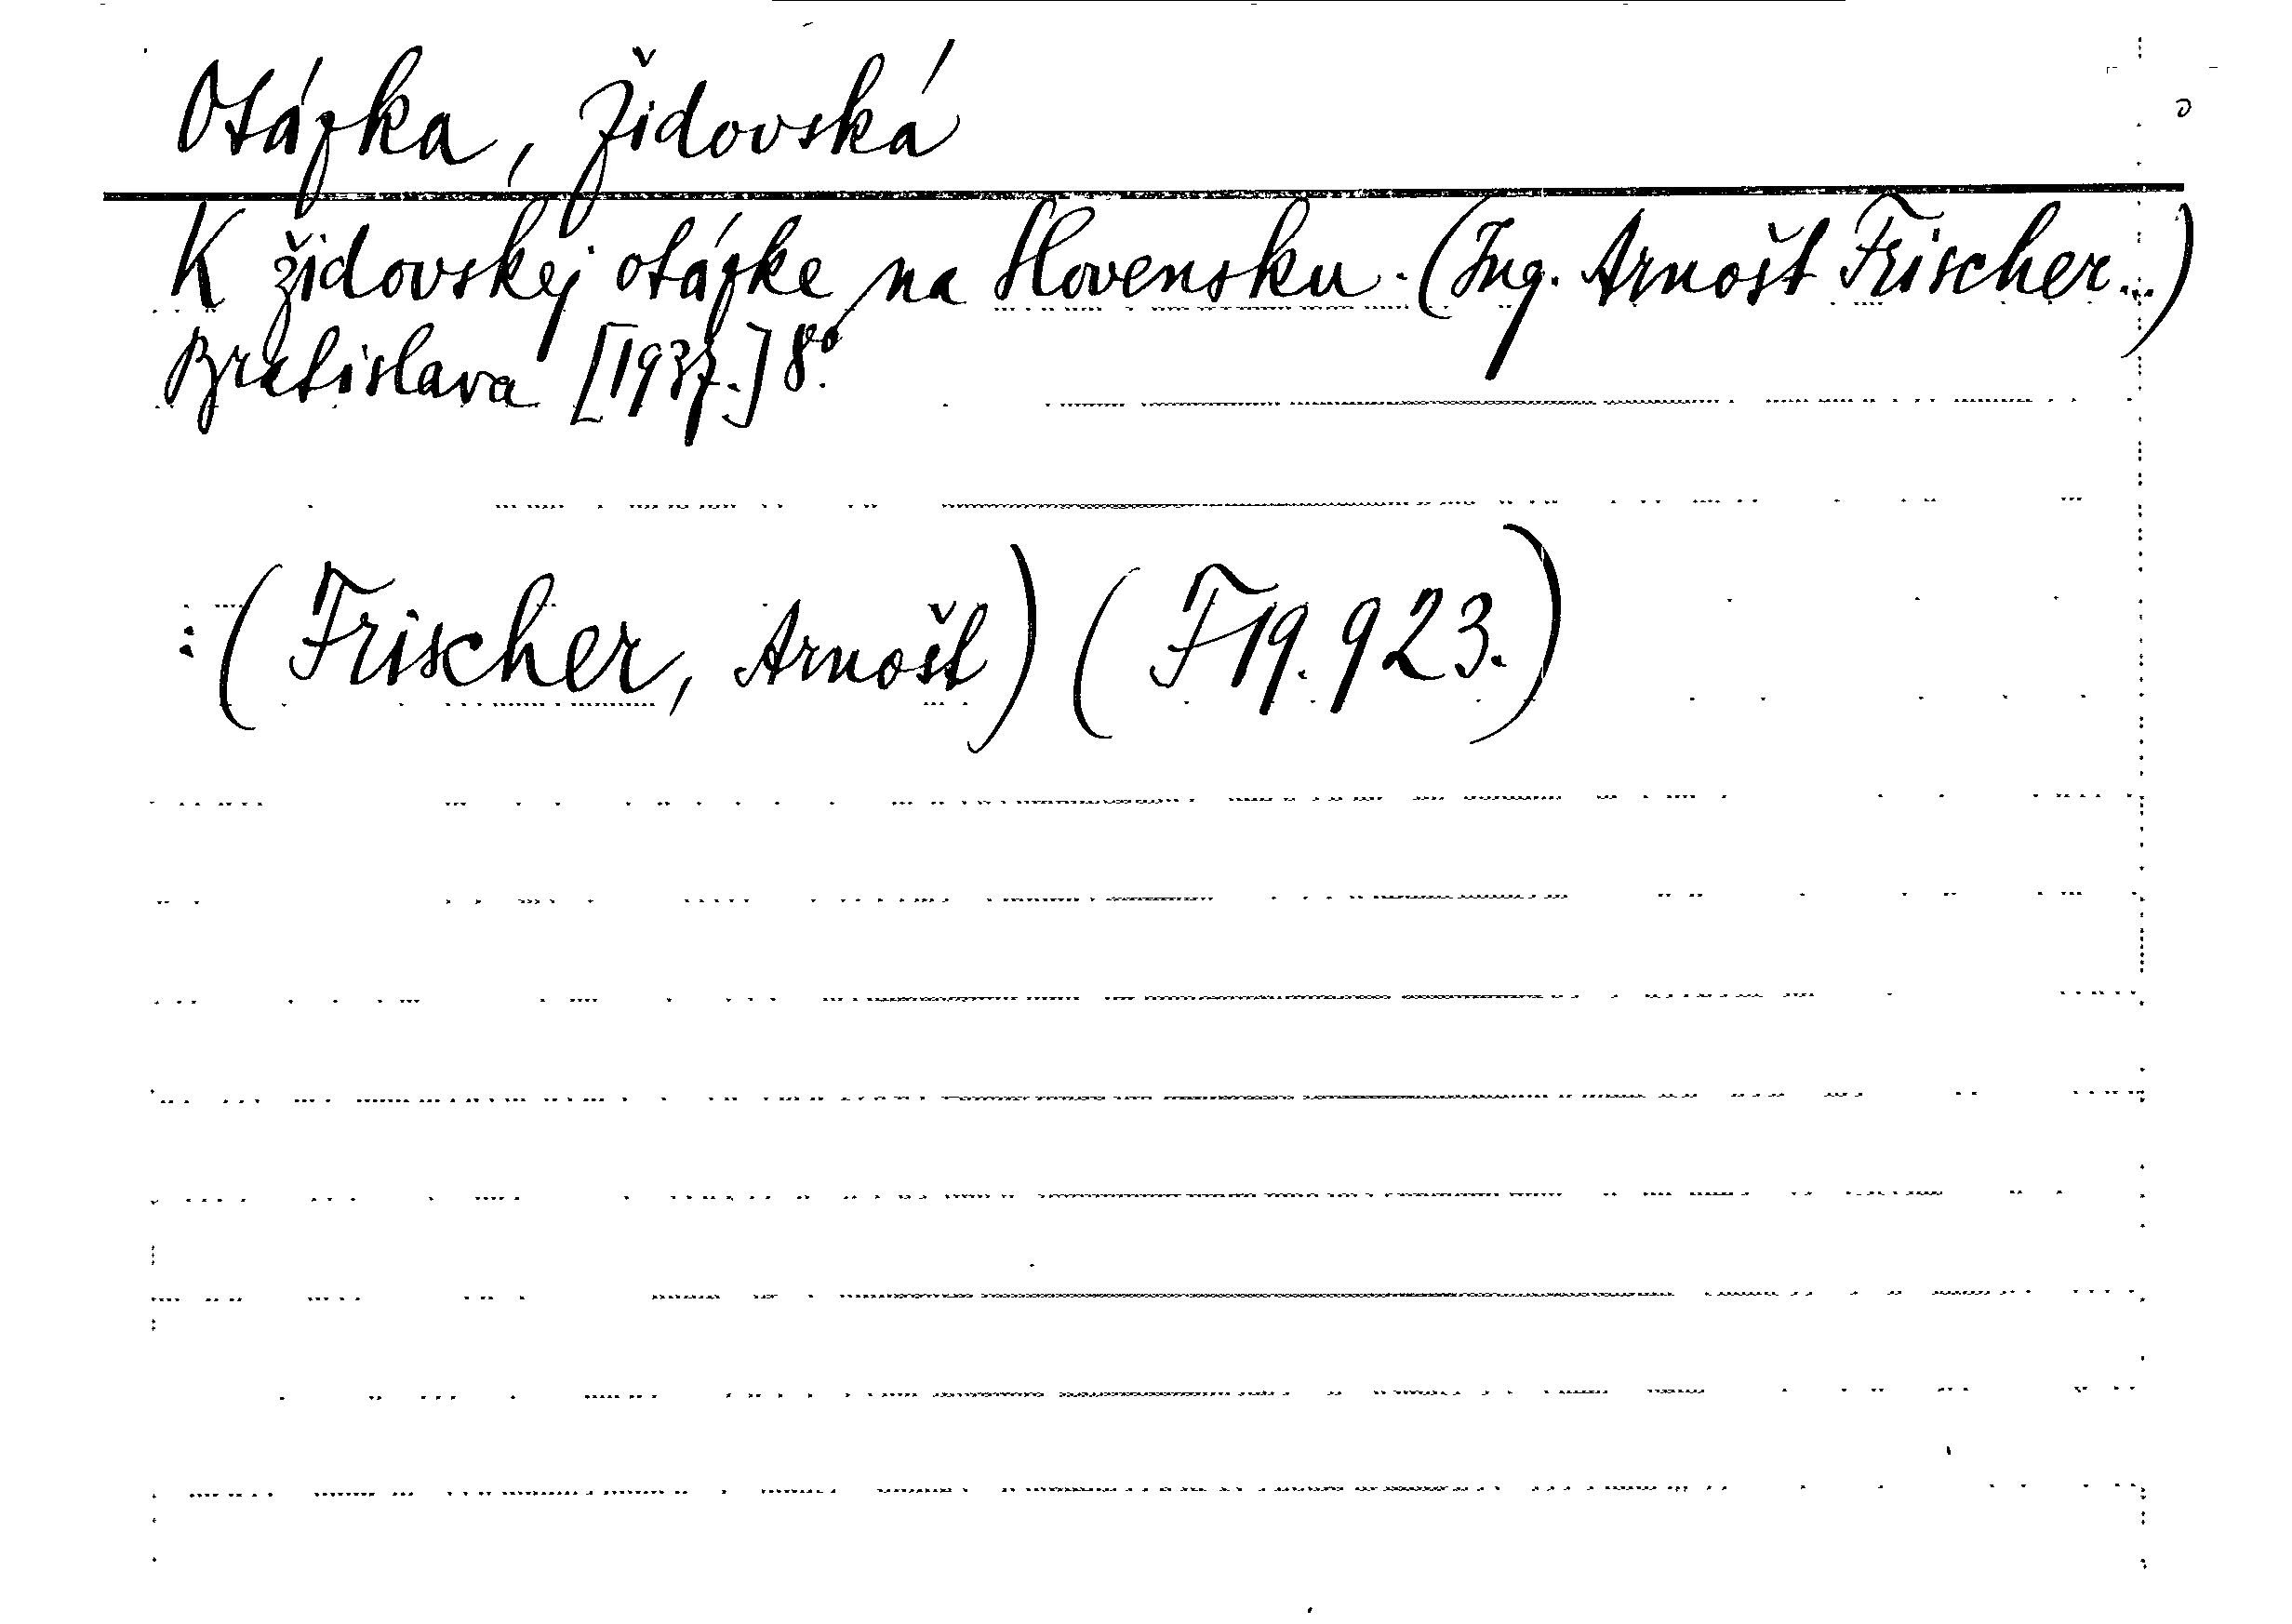 Otázka, Židovská
K židovskej otázke na Slovensku. (Ing. Arnošt Frischer...)
Bratislava [1937.] 8°.
: (Frischer, Arnošt) (F 19.923.)